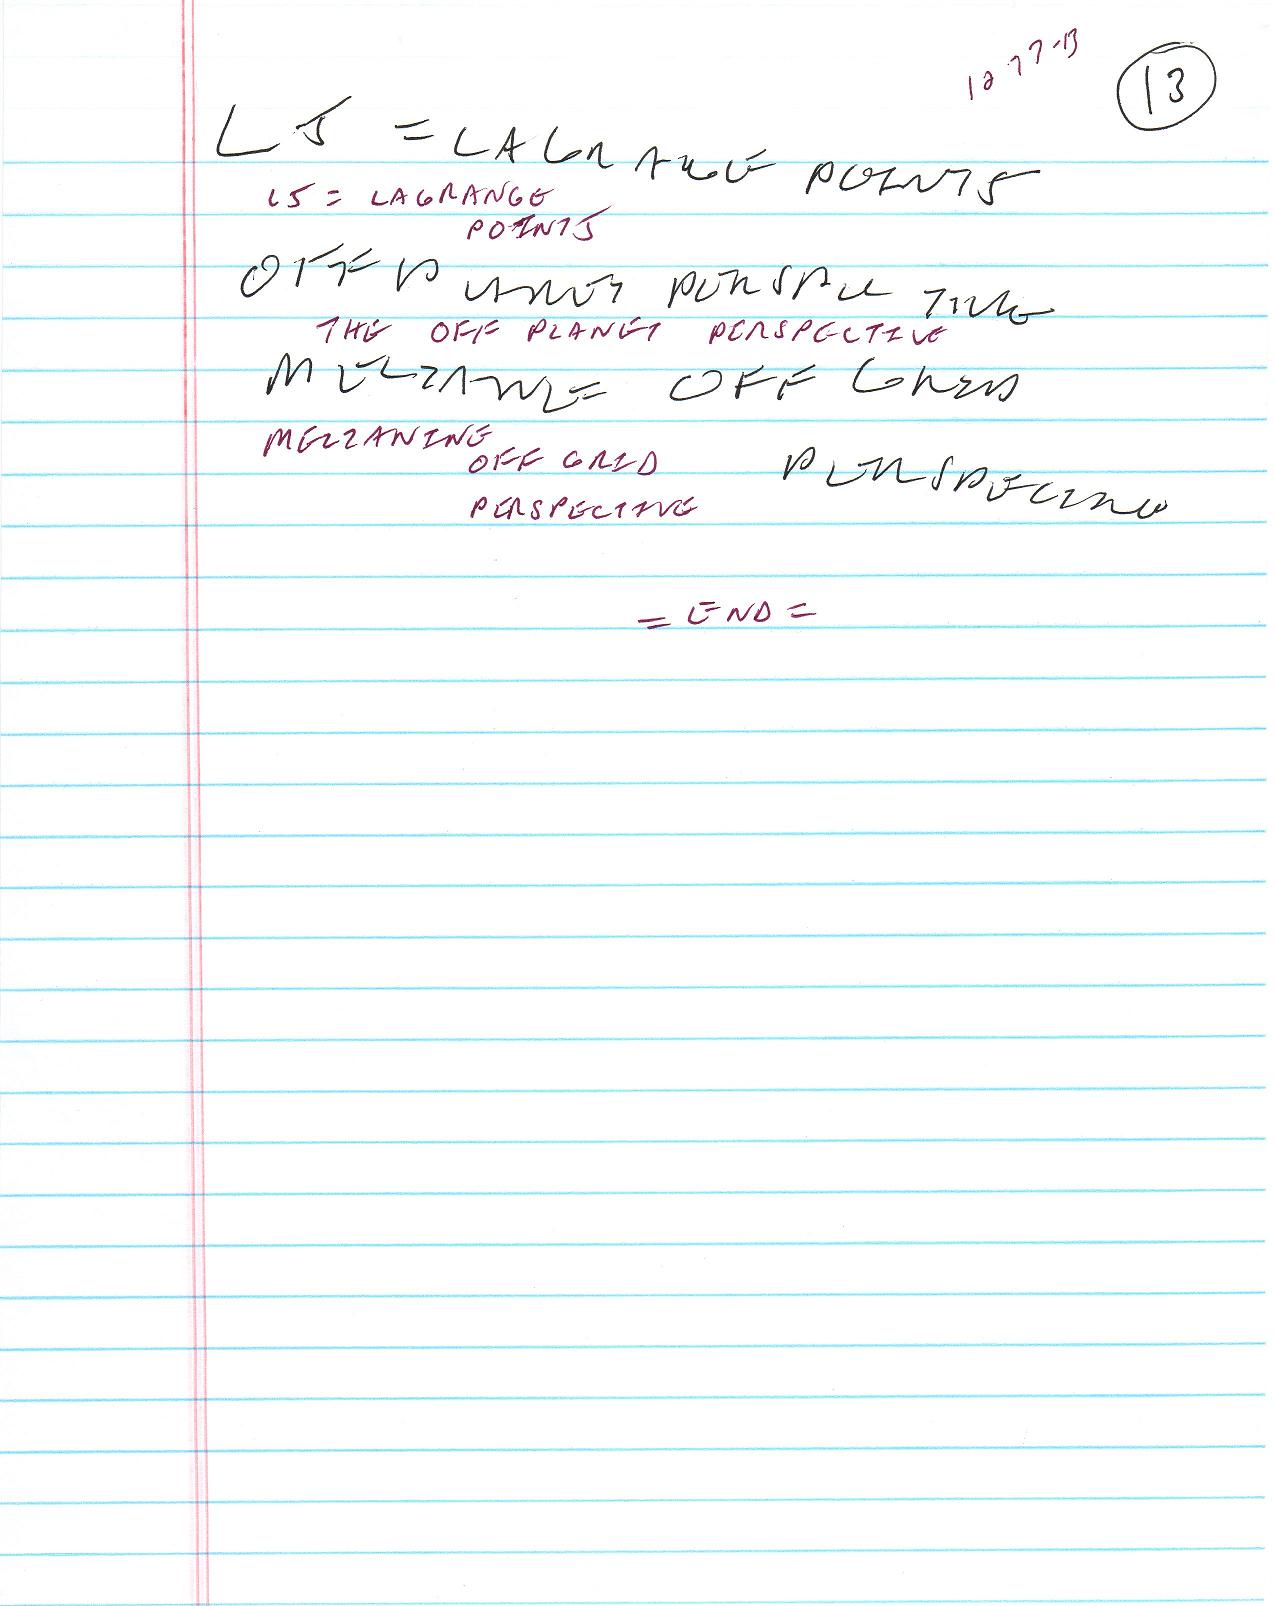 1277-B
13
L5 = LAGRANGE POINTS
L5 = LAGRANGE
POINTS
OFF PLANET PERSPECTIVE
THE OFF PLANET PERSPECTIVE
MEZZANINE OFF GRID
MEZZANINE
OFF GRID
PERSPECTIVE
PERSPECTIVE
= END =